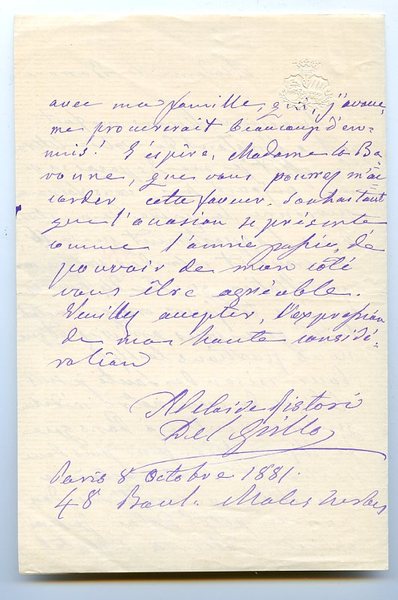 avec ma famille, qui, j'avoue,
me procurerait beaucoup d'en-
nuis! J'éspère, Madame la Ba
ronne, que vous pourrez m'ac
corder cette faveur. Souhaitant
que l'occasion se présente
comme l'année passée, de
pouvoir de mon côté
vous être agréable.
Veuillez accepter, l'expression
de ma haute considé-
ration
Adelaide Ristori
Del Grillo
Paris 8 Octobre 1881.
48 Boul. Malesherbes